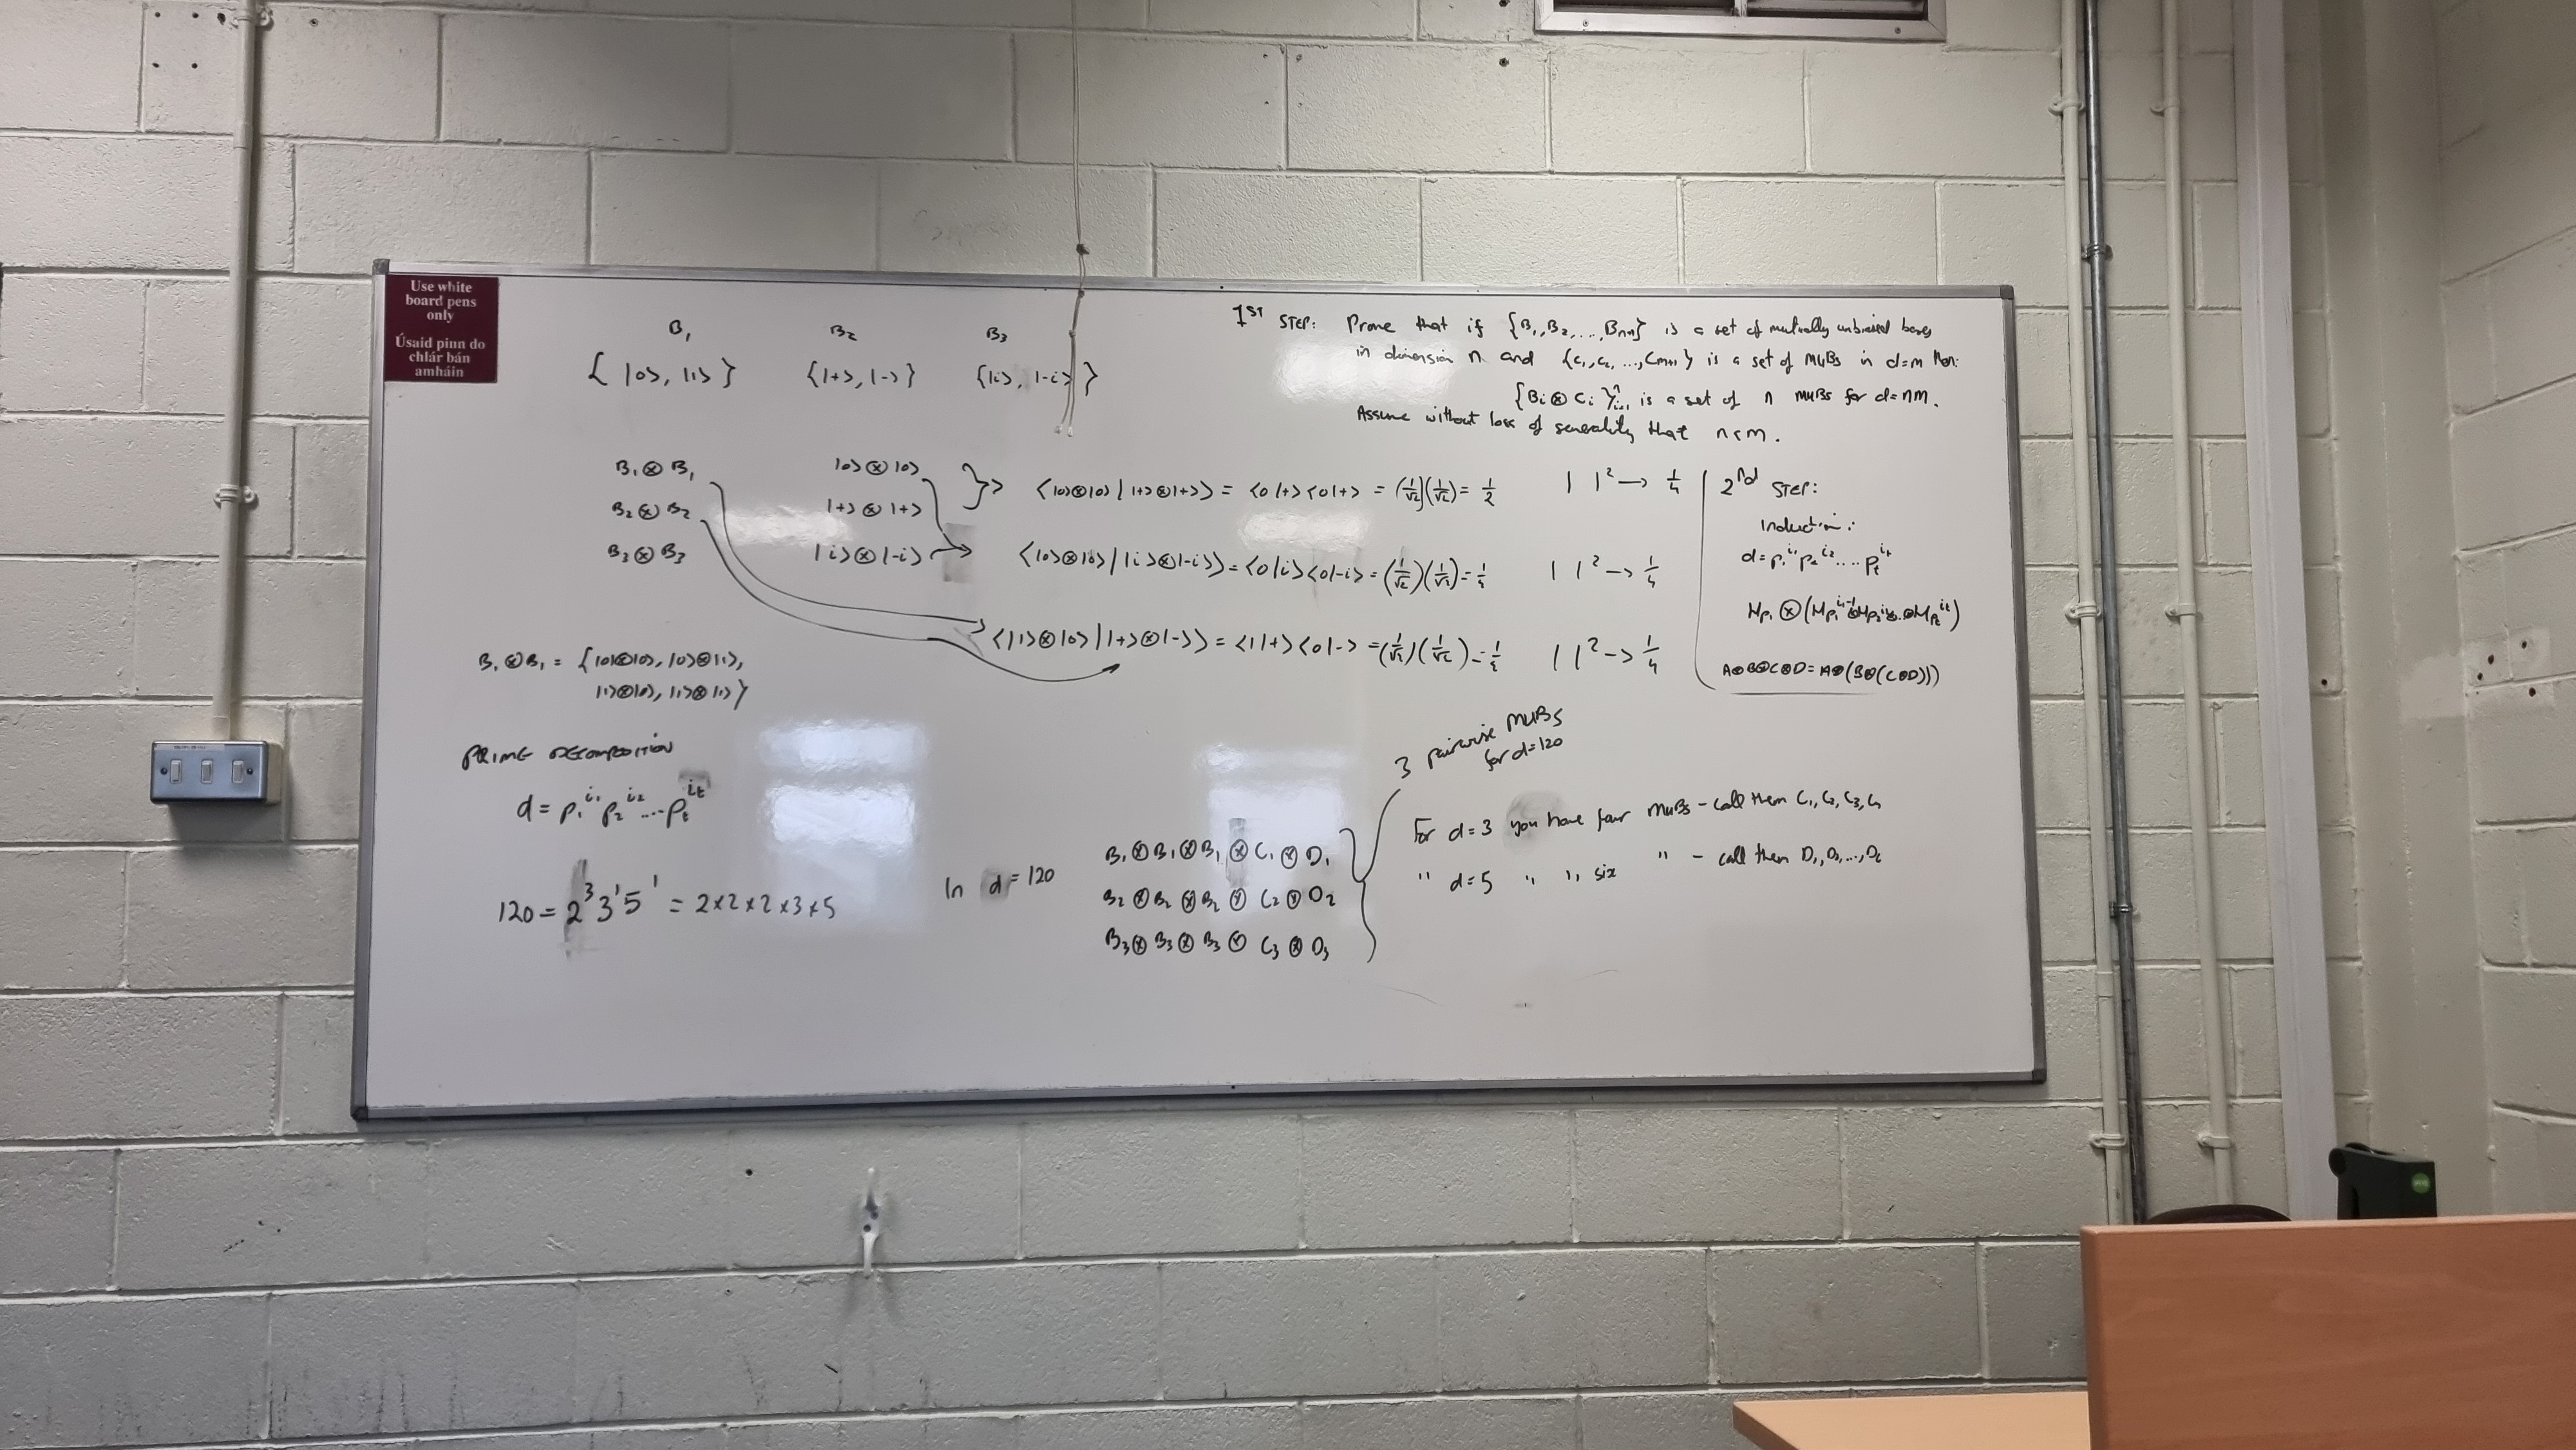 Use white
board pens
only
Úsáid pinn do
chlár bán
amháin
B₁ B₂ B₃
{ |0>, |1> } {|+>, |->} {|i>, |-i>}
1ST STEP: Prove that if {B₁, B₂, ..., Bn+1} is a set of mutually unbiased bases
in dimension n and {C₁, C₂, ..., Cm+1} is a set of MUBs in d=m then:
{Bi ⊗ Ci}ⁿi=1 is a set of n MUBs for d=nm.
Assume without loss of generality that n<m.
B₁ ⊗ B₁
B₂ ⊗ B₂
B₃ ⊗ B₃
|0> ⊗ |0>
|+> ⊗ |+>
|i> ⊗ |-i>
<|0>⊗|0> | |+>⊗|+>> = <0|+><0|+> = (1/√2)(1/√2) = 1/2 | |² → 1/4
<|0>⊗|0> | |i>⊗|-i>> = <0|i><0|-i> = (1/√2)(1/√2) = 1/2 | |² → 1/4
<|1>⊗|0> | |+>⊗|->> = <1|+><0|-> = (1/√2)(1/√2) = 1/2 | |² → 1/4
2nd STEP:
Induction:
d = p₁^i₁ p₂^i₂ .... pt^it
Mp₁ ⊗ (Mp₁^i₁-1 ⊗ Mp₂^i₂ ... ⊗ Mpt^it)
A⊗B⊗C⊗D = A⊗(B⊗(C⊗D))
B₁ ⊗ B₁ = {|0>⊗|0>, |0>⊗|1>,
|1>⊗|0>, |1>⊗|1>}
PRIME DECOMPOSITION
d = p₁^i₁ p₂^i₂ .... pt^it
120 = 2³3¹5¹ = 2×2×2×3×5
In d=120
B₁ ⊗ B₁ ⊗ B₁ ⊗ C₁ ⊗ D₁
B₂ ⊗ B₂ ⊗ B₂ ⊗ C₂ ⊗ D₂
B₃ ⊗ B₃ ⊗ B₃ ⊗ C₃ ⊗ D₃
3 pairwise MUBs
for d=120
For d=3 you have four MUBs - call them C₁, C₂, C₃, C₄
" d=5 " " six " - call them D₁, D₂, ..., D₆